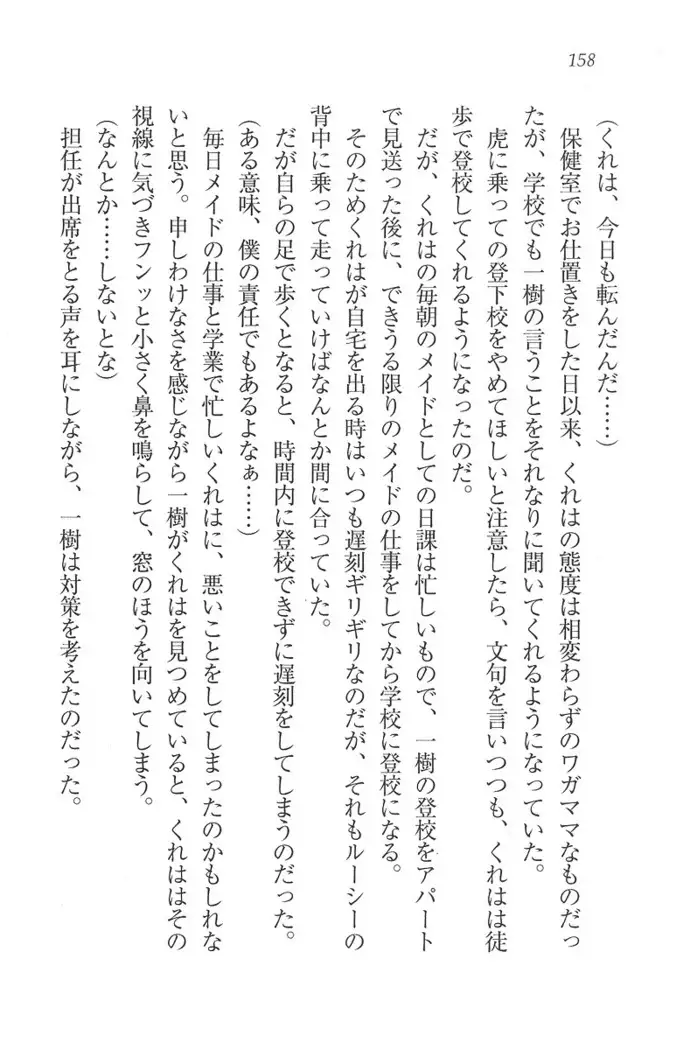 158
(くれは、今日も転んだんだ……)
保健室でお仕置きをした日以来、くれはの態度は相変わらずのワガママなものだっ
たが、学校でも一樹の言うことをそれなりに聞いてくれるようになっていた。
虎に乗っての登下校をやめてほしいと注意したら、文句を言いつつも、くれはは徒
歩で登校してくれるようになったのだ。
だが、くれはの毎朝のメイドとしての日課は忙しいもので、一樹の登校をアパート
で見送った後に、できうる限りのメイドの仕事をしてから学校に登校になる。
そのためくれはが自宅を出る時はいつも遅刻ギリギリなのだが、それもルーシーの
背中に乗って走っていけばなんとか間に合っていた。
だが自らの足で歩くとなると、時間内に登校できずに遅刻をしてしまうのだった。
(ある意味、僕の責任でもあるよなぁ……)
毎日メイドの仕事と学業で忙しいくれはに、悪いことをしてしまったのかもしれな
いと思う。申しわけなさを感じながら一樹がくれはを見つめていると、くれははその
視線に気づきフンッと小さく鼻を鳴らして、窓のほうを向いてしまう。
(なんとか……しないとな)
担任が出席をとる声を耳にしながら、一樹は対策を考えたのだった。